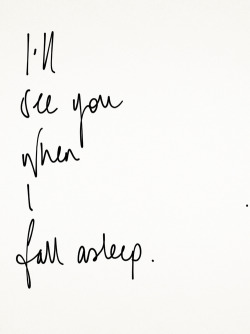 I'll
see you
when
I
fall asleep.